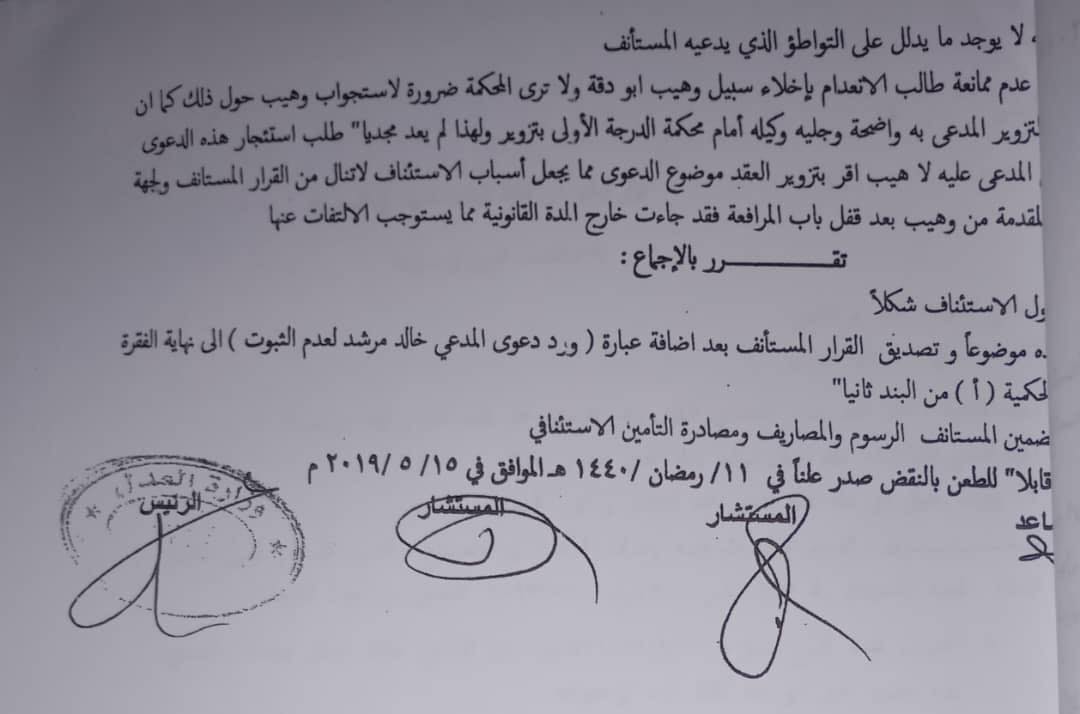 لا يوجد ما يدلل على التواطؤ الذي يدعيه المستأنف
عدم ممانعة طالب الانعدام بإخلاء سبيل وهيب ابو دقة ولا ترى المحكمة ضرورة لاستجواب وهيب حول ذلك كما ان
لتزوير المدعى به واضحة وجليه وكيله أمام محكمة الدرجة الأولى بتزوير ولهذا لم يعد مجديا" طلب استئجار هذه الدعوى
المدعى عليه لا هيب اقر بتزوير العقد موضوع الدعوى مما يجعل أسباب الاستئناف لاتنال من القرار المستانف ولجهة
لمقدمة من وهيب بعد قفل باب المرافعة فقد جاءت خارج المدة القانونية مما يستوجب الالتفات عنها
تقـــــــــرر بالإجماع :
ول الاستئناف شكلاً
ده موضوعاً و تصديق القرار المستأنف بعد اضافة عبارة ( ورد دعوى المدعي خالد مرشد لعدم الثبوت ) الى نهاية الفقرة
لحكمية ( أ ) من البند ثانيا"
ضمين المستانف الرسوم والمصاريف ومصادرة التأمين الاستئنافي
قابلا" للطعن بالنقض صدر علناً في ١١/ رمضان /١٤٤٠ هـ الموافق في ١٥/ ٥ /٢٠١٩ م
ـاعد المستشار المستشار الرئيس
وزارة العدل